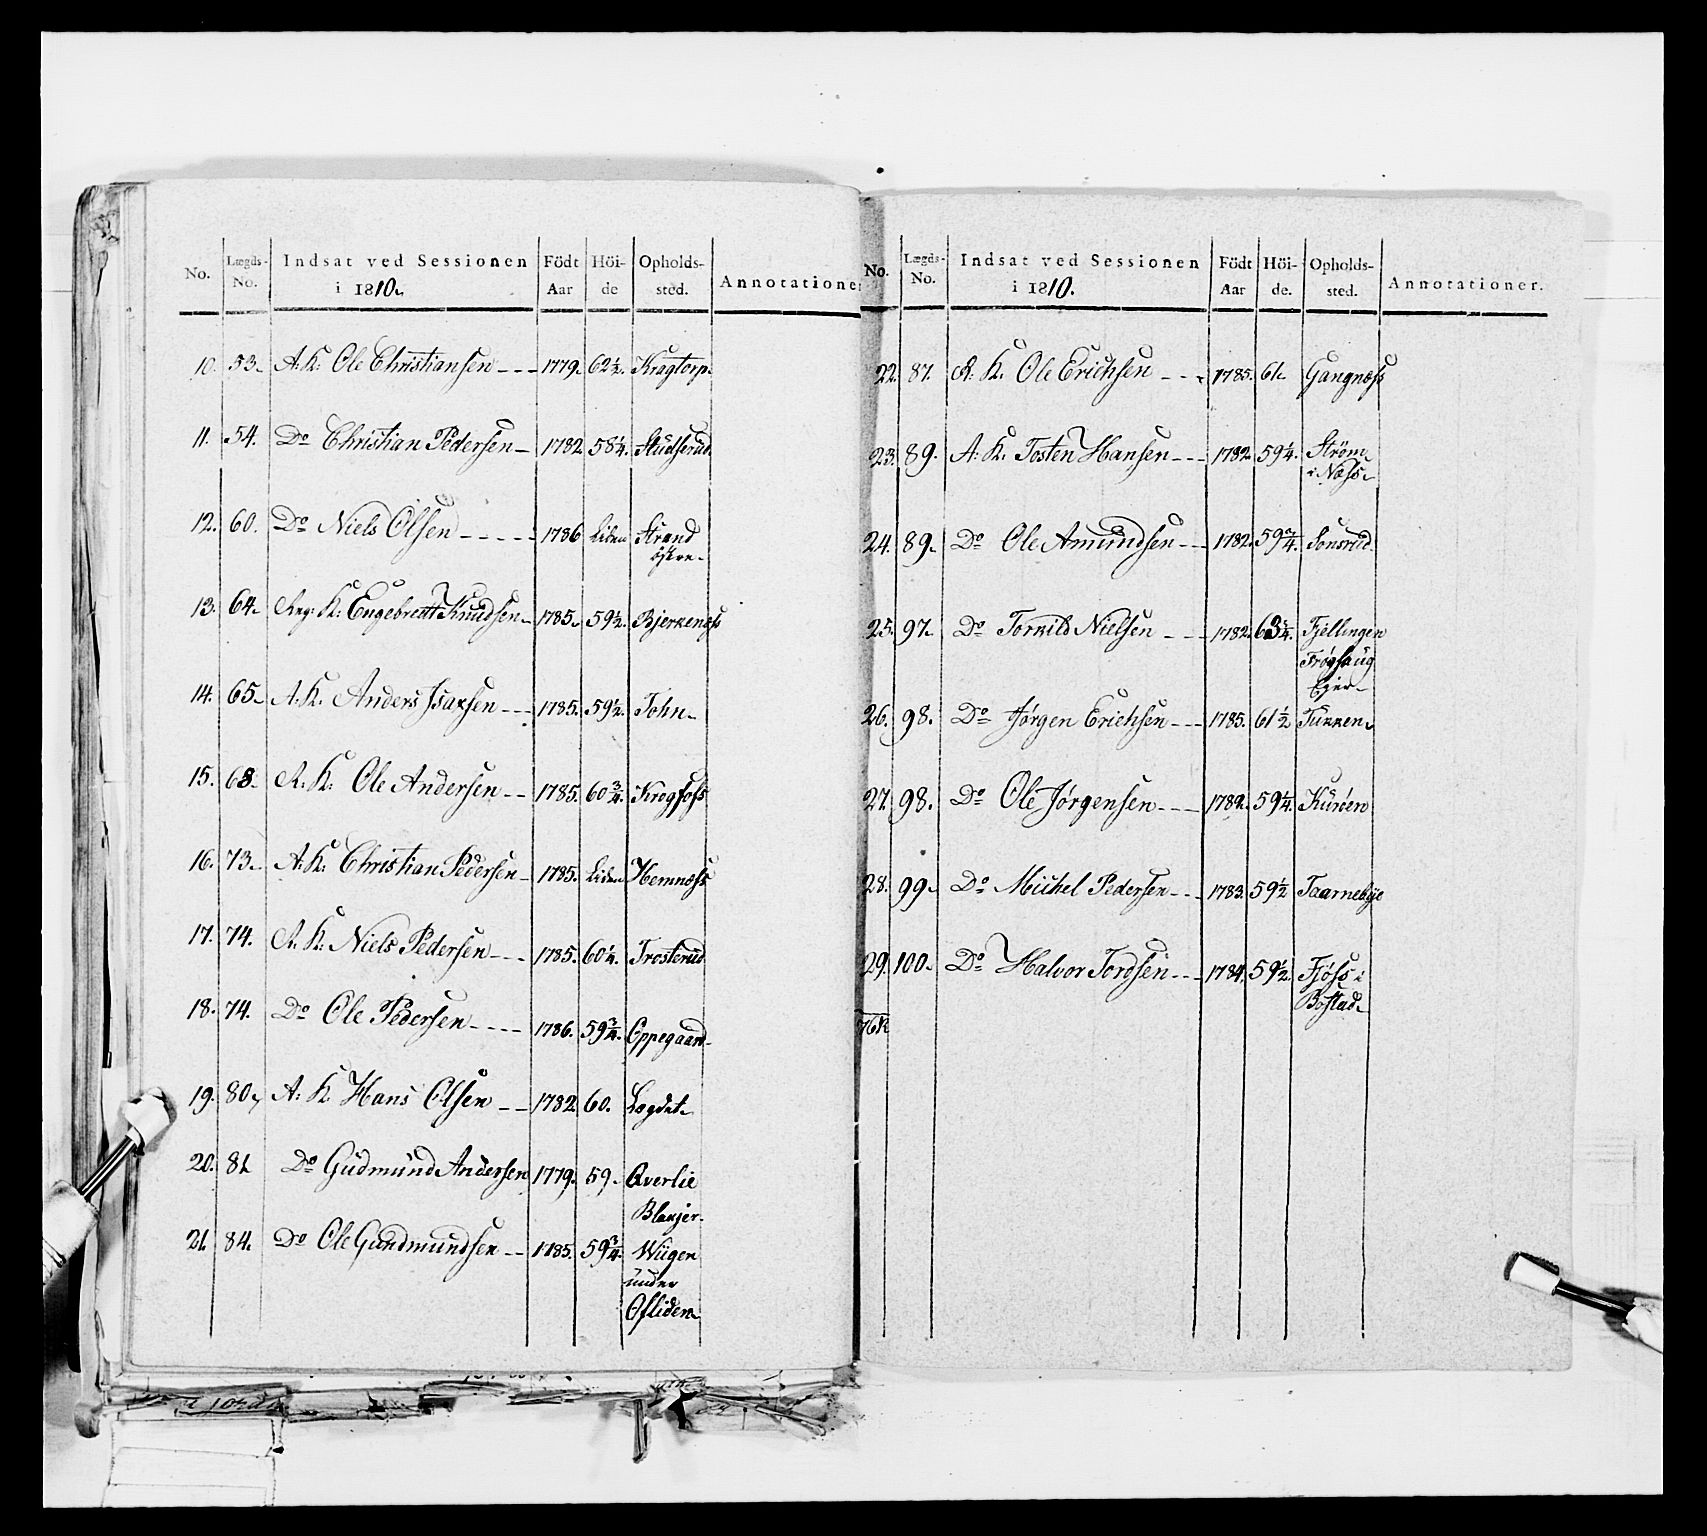 No. Lægds- No. Indsat ved Sessionen i 1810. Födt Aar Höi- de Opholds- sted. Annotatione
10. 53. A. K: Ole Christiansen --- 1779. 62½. Kragtorp.
11. 54. Do Christian Pedersen - 1782 58¼. Studserud
12. 60. Do Niels Olsen ----- 1786 Liden Strand
östre
13. 64. Reg: K: Engebrett Knudsen 1785. 59½. Bjerkenæss
14. 65. A. K. Anders Isaksen --- 1785. 59½. Tohn
15. 68. R. K: Ole Andersen -- 1785. 60¾. Krogfoss
16. 73. A: K: Christian Pedersen 1785. Liden Hemnæss
17. 74. R. K: Niels Pedersen --- 1785. 60¼. Trosterud
18. 74. Do Ole Pedersen ---- 1786. 59¾. Oppegaard
19. 80. A: K Hans Olsen -- 1782 60. Lægdet
20. 81. Do Gudmund Andersen 1779. 59. Overlie
Blakjer.
21. 84. Do Ole Gundmundsen -- 1785. 59¾. Wiigen
under
Ofliden
No. Lægds- No. Indsat ved Sessionen i 1810. Födt Aar Höi- de. Opholds- sted. Annotationer.
22. 87. R: K. Ole Erichsen --- 1785. 61. Gangnæss
23. 89. A: K. Tosten Hansen --- 1782. 59¼. Ström
i Næss
24. 89. Do Ole Amundsen -- 1782. 59¾. Sonsrud.
25. 97. Do Torkild Nielsen --- 1782. 63¼. Fjellingen
Frøghaug
Ejer
26. 98. Do Jørgen Erichsen --- 1785. 61½ Tukken
27. 98. Do Ole Jørgensen --- 1782. 59¼. Kuréen
28. 99. Do Michel Pedersen --- 1783. 59½ Taarnebye
29. 100. Do Halvor Tordsen -- 1784. 59½. Fjøss i
Bostad